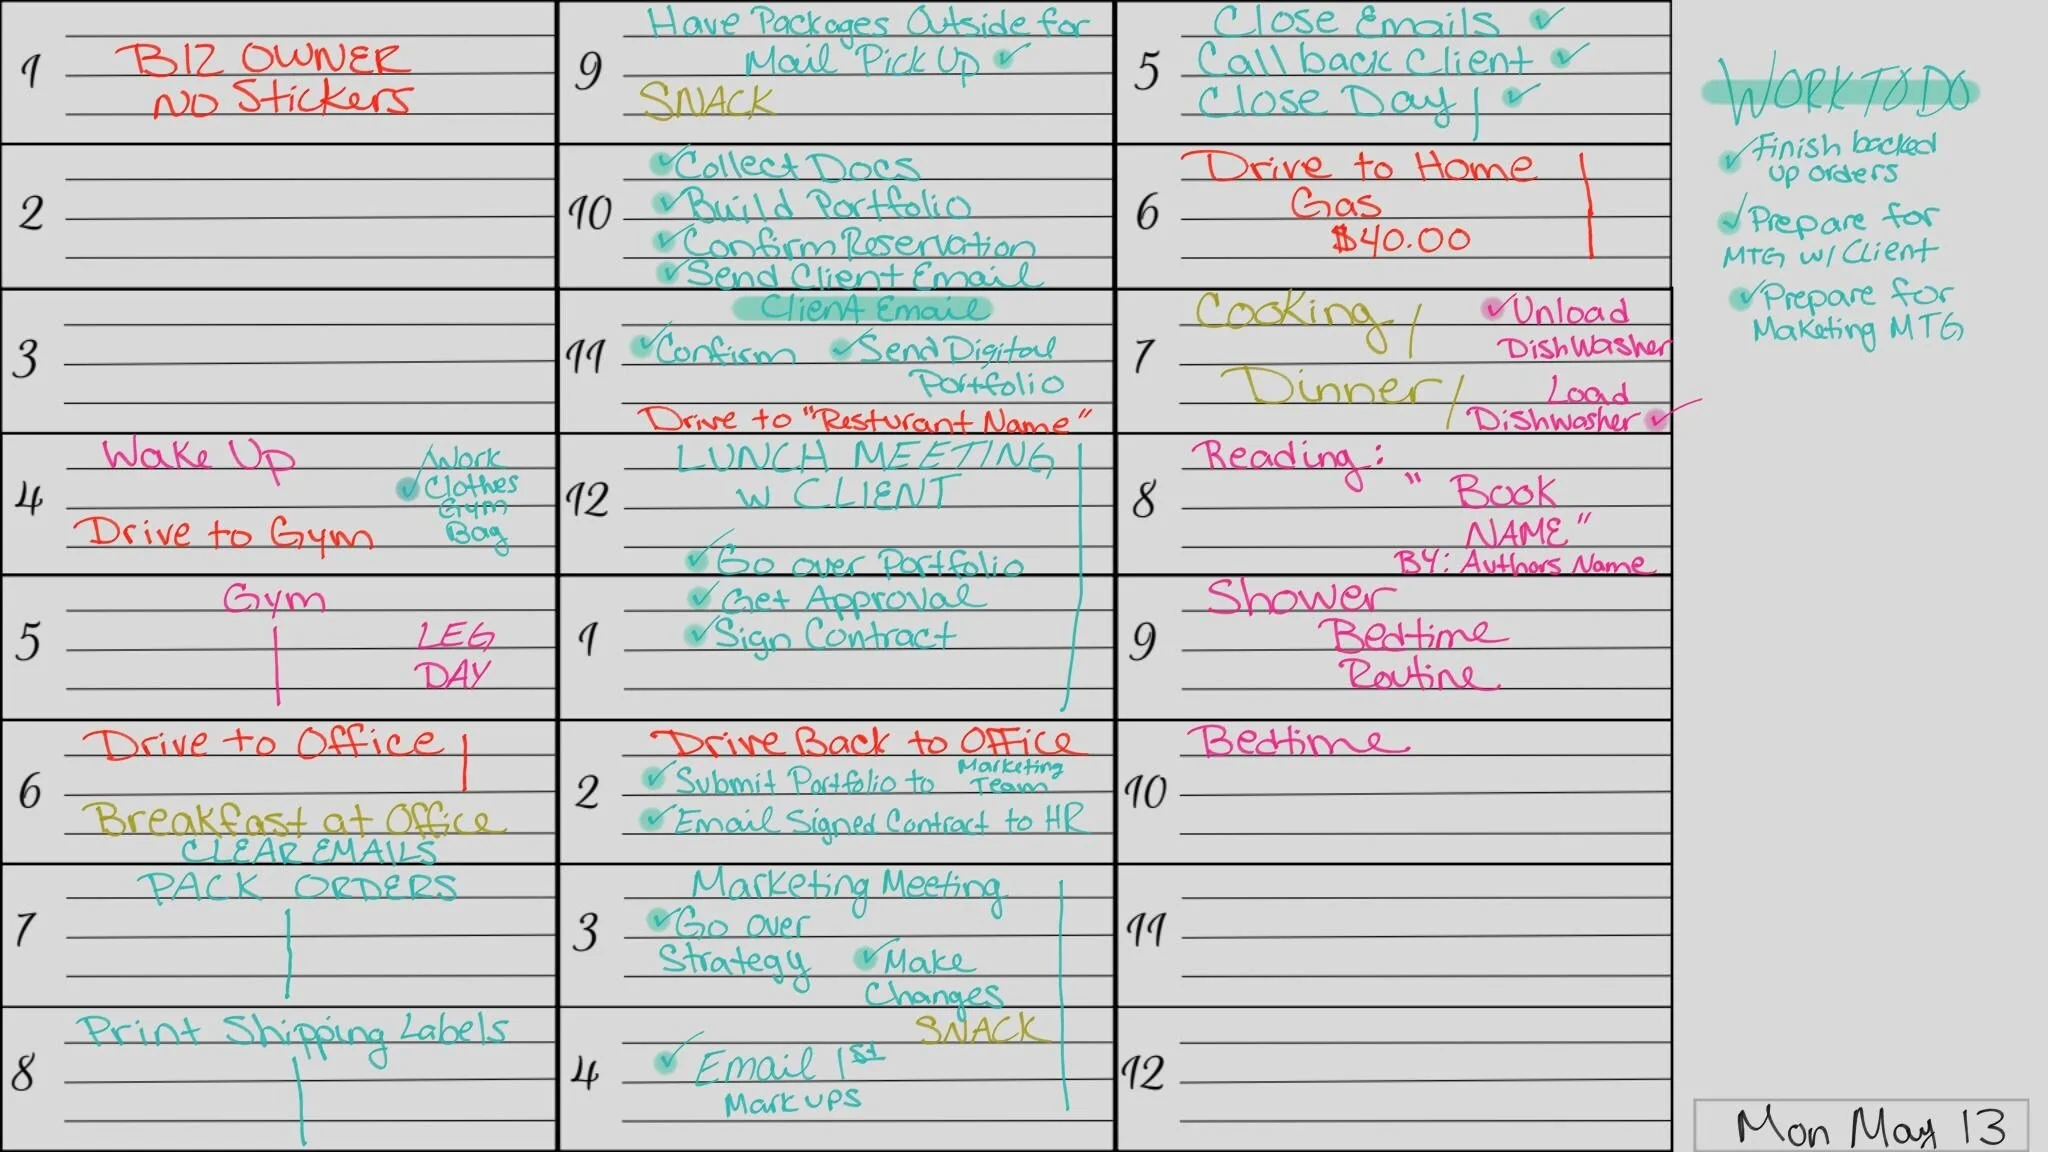 1
BIZ OWNER
NO Stickers
2
3
4
Wake Up
Work
Clothes
Gym
Bag
Drive to Gym
5
Gym
LEG
DAY
6
Drive to Office
Breakfast at Office
CLEAR EMAILS
7
PACK ORDERS
8
Print Shipping Labels
9
Have Packages Outside for
Mail Pick Up
SNACK
10
Collect Docs
Build Portfolio
Confirm Reservation
Send Client Email
11
Client Email
Confirm
Send Digital
Portfolio
Drive to "Resturant Name"
12
LUNCH MEETING
W CLIENT
Go over Portfolio
1
Get Approval
Sign Contract
2
Drive Back to Office
Submit Portfolio to Marketing
Team
Email Signed Contract to HR
3
Marketing Meeting
Go over
Strategy
Make
Changes
4
SNACK
Email 1st
Mark ups
5
Close Emails
Call back Client
Close Day
6
Drive to Home
Gas
$40.00
7
Cooking
Unload
DishWasher
Dinner
Load
Dishwasher
8
Reading:
"Book
NAME"
BY: Authors Name
9
Shower
Bedtime
Routine
10
Bedtime
11
12
WORK TO DO
Finish backed
up orders
Prepare for
MTG w/ Client
Prepare for
Maketing MTG
Mon May 13